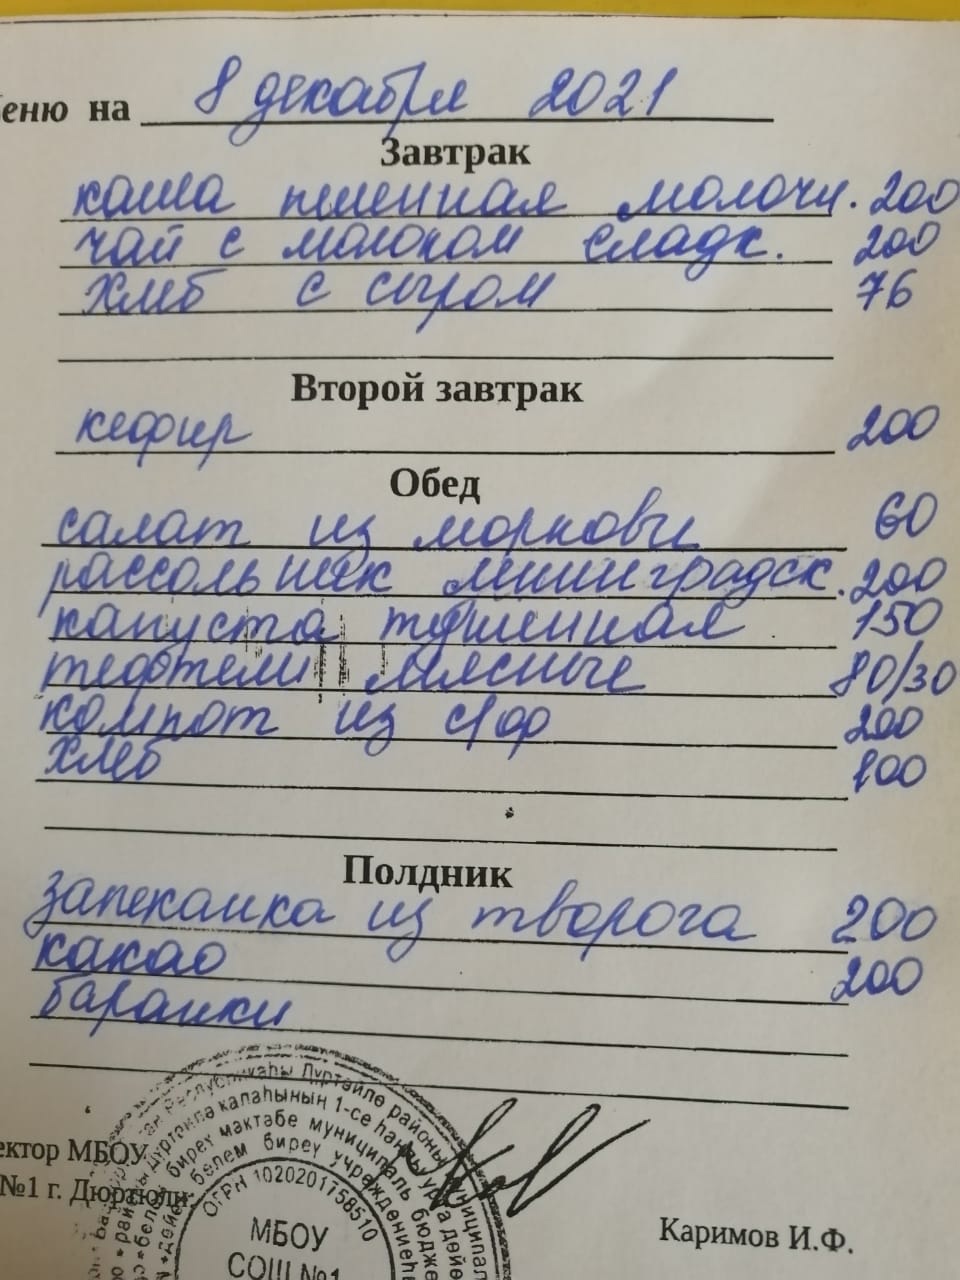 еню на 8 декабря 2021
Завтрак
каша пшенная молочн. 200
чай с молоком сладк. 200
хлеб с сыром 76
Второй завтрак
кефир 200
Обед
салат из моркови 60
рассольник ленинградск. 200
капуста тушенная 150
тефтели мясные 80/30
компот из с/ф 200
хлеб 100
Полдник
запеканка из творога 200
какао 200
баранки
ектор МБОУ
№1 г. Дюртюли
Каримов И.Ф.
Республикаһы Дүртөйлө районы муниципаль
Дүртөйлө ҡалаһының 1-се һанлы урта дөйөм
белем биреү мәктәбе муниципаль бюджет
дөйөм белем биреү учреждениеһы
ОГРН 1020201758510
МБОУ
СОШ №1